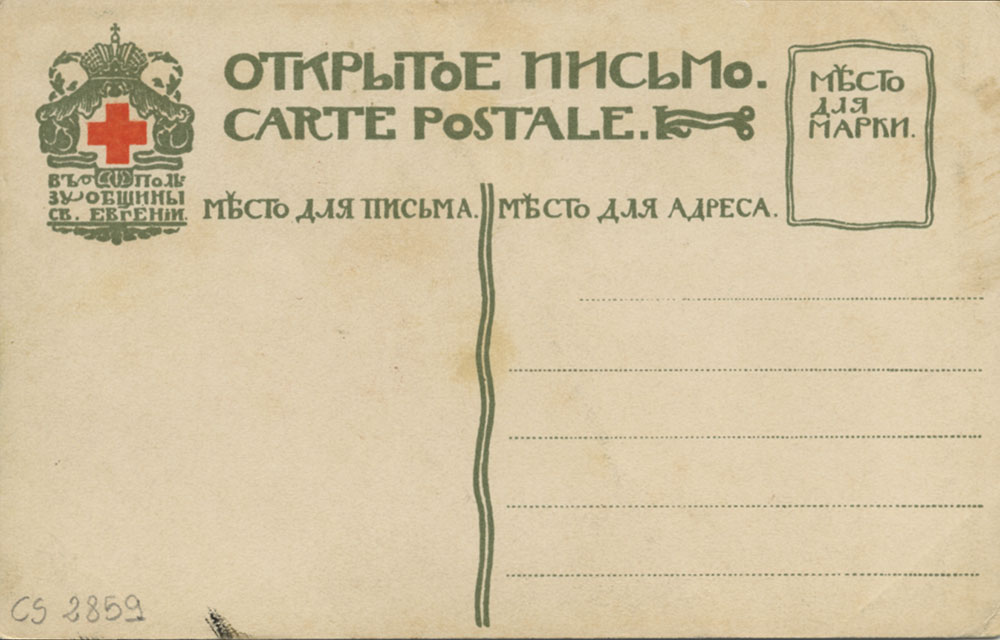 ОТКРЫТОЕ ПИСЬМО.
CARTE POSTALE.
МѢСТО
ДЛЯ
МАРКИ.
ВЪ ПОЛЬ
ЗУ ОБЩИНЫ
СВ. ЕВГЕНІИ.
МѢСТО ДЛЯ ПИСЬМА.
МѢСТО ДЛЯ АДРЕСА.
CS 2859